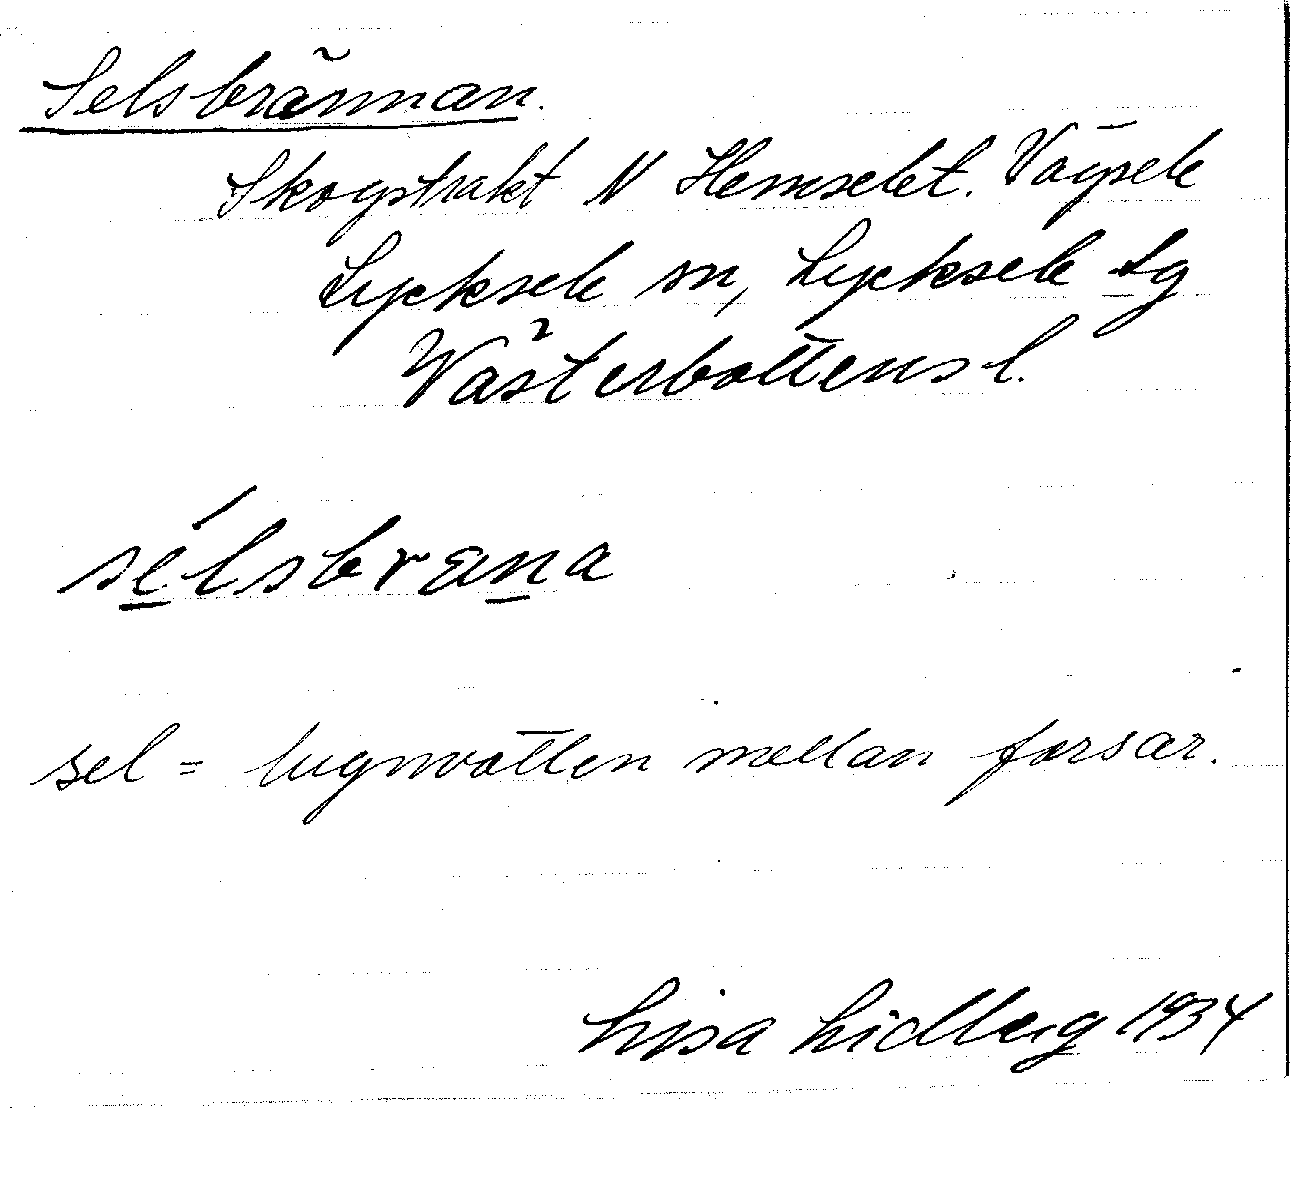 Selsbrännan.
Skogstrakt N Hemselet. Vägsele
Lycksele sn, Lycksele lg
Västerbottens l.
sélsbrana
sel = lugnvatten mellan forsar.
Lisa Lidberg 1934